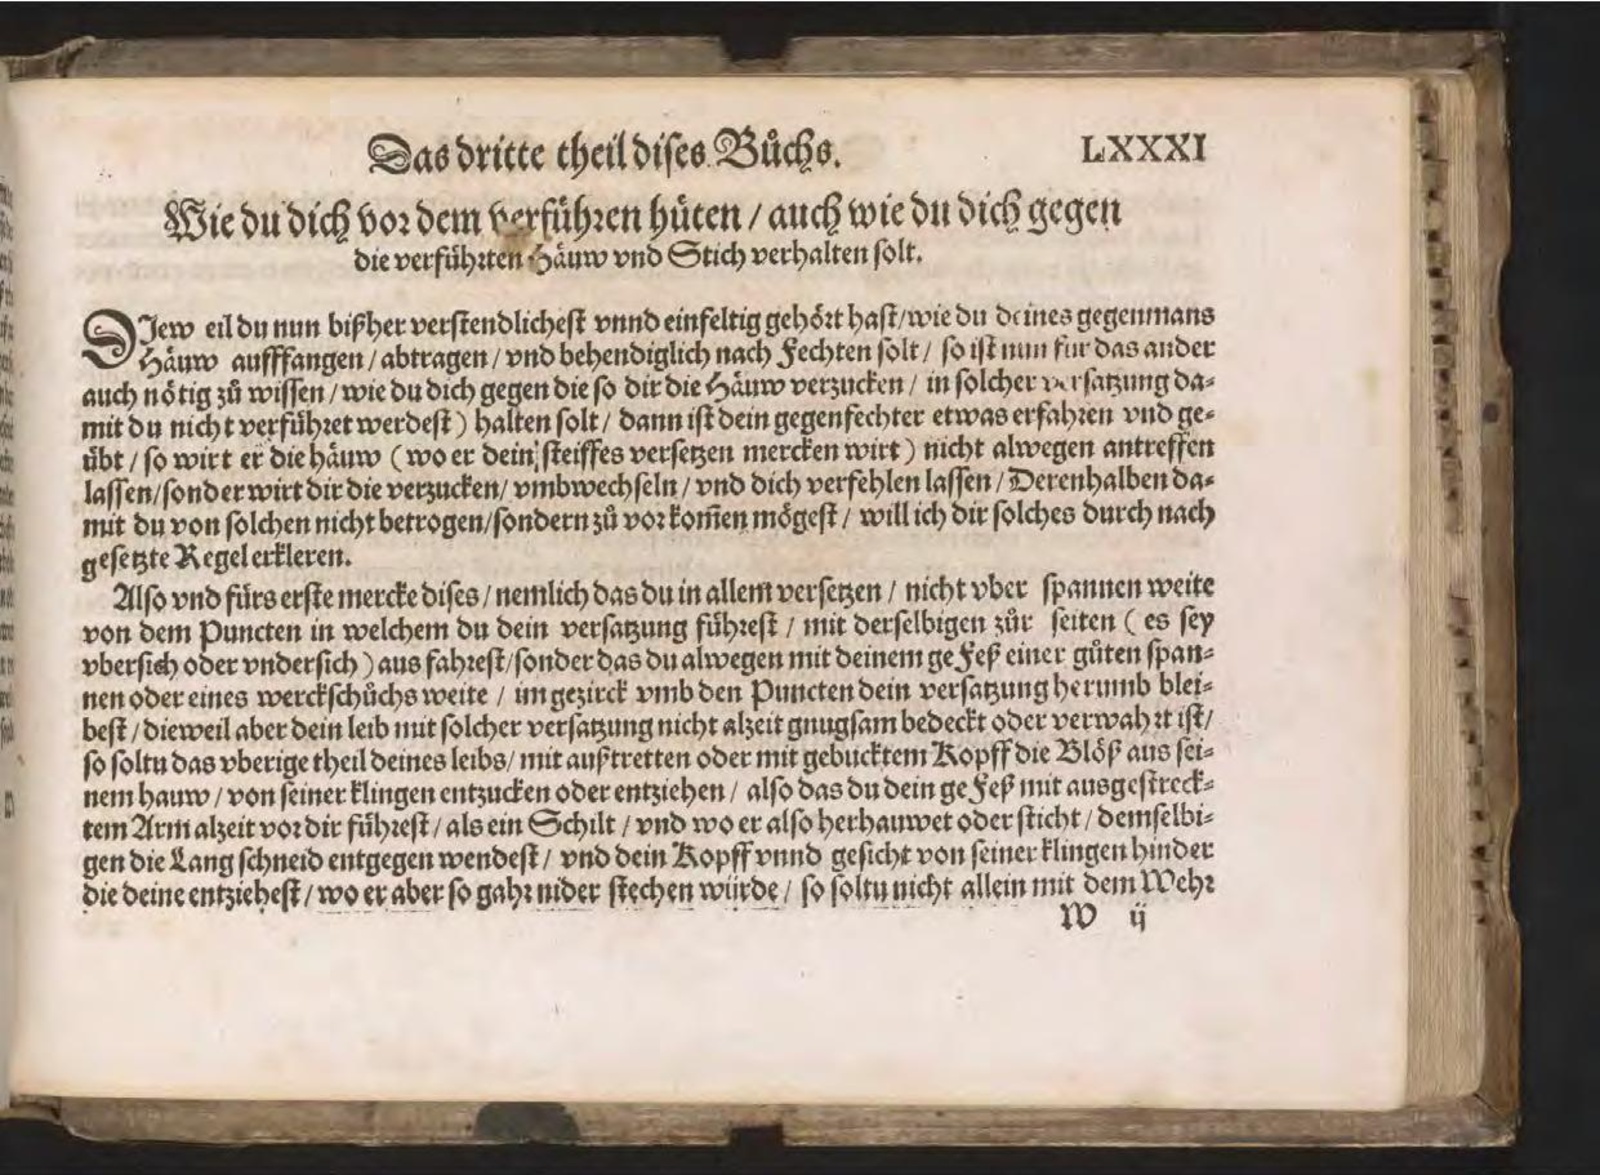 Das dritte theil dises Bůchs. LXXXI
Wie du dich vor dem verführen hüten / auch wie du dich gegen
die verführten Häuw vnd Stich verhalten solt.
DJew eil du nun bißher verstendlichest vnnd einfeltig gehört hast / wie du deines gegenmans
Häuw aufffangen / abtragen / vnd behendiglich nach Fechten solt / so ist nun fur das ander
auch nötig zů wissen / wie du dich gegen die so dir die Häuw verzucken / in solcher versatzung da⸗
mit du nicht verführet werdest) halten solt / dann ist dein gegenfechter etwas erfahren vnd ge⸗
übt / so wirt er die häuw (wo er dein steiffes versetzen mercken wirt) nicht alwegen antreffen
lassen / sonder wirt dir die verzucken / vmbwechseln / vnd dich verfehlen lassen / Derenhalben da⸗
mit du von solchen nicht betrogen / sondern zů vor kom̃en mögest / will ich dir solches durch nach
gesetzte Regel erkleren.
Also vnd fürs erste mercke dises / nemlich das du in allem versetzen / nicht vber spannen weite
von dem Puncten in welchem du dein versatzung führest / mit derselbigen zůr seiten (es sey
vbersich oder vndersich) aus fahrest / sonder das du alwegen mit deinem gefeß einer gůten span⸗
nen oder eines werckschůchs weite / im gezirck vmb den Puncten dein versatzung herumb blei⸗
best / dieweil aber dein leib mit solcher versatzung nicht alzeit gnugsam bedeckt oder verwahrt ist /
so soltu das vberige theil deines leibs / mit außtretten oder mit gebucktem Kopff die Blöß aus sei⸗
nem hauw / von seiner klingen entzucken oder entziehen / also das du dein gefeß mit ausgestreck⸗
tem Arm alzeit vor dir führest / als ein Schilt / vnd wo er also herhauwet oder sticht / demselbi⸗
gen die Lang schneid entgegen wendest / vnd dein Kopff vnnd gesicht von seiner klingen hinder
die deine entziehest / wo er aber so gahr nider stechen würde / so soltu nicht allein mit dem Wehr
W ij